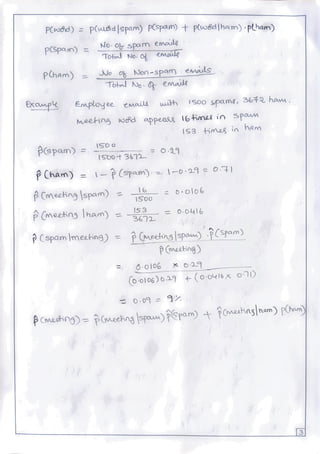 P(word) = P(word|spam) P(spam) + P(word|ham) · P(ham)
P(spam) = No. of spam emails
Total No. of emails
P(ham) = No of Non-spam emails
Total No. of emails
Example Employee emails with 1500 spams, 3672 ham.
Meeting word appears 16 times in spam
153 times in ham
p̂(spam) = 1500 / 1500+3672 = 0.29
p̂(ham) = 1 - p̂(spam) = 1-0.29 = 0.71
p̂(meeting|spam) = 16 / 1500 = 0.0106
p̂(meeting|ham) = 153 / 3672 = 0.0416
p̂(spam|meeting) = p̂(meeting|spam) · p̂(spam)
p̂(meeting)
= 0.0106 × 0.29
(0.0106)0.29 + (0.0416 × 0.71)
= 0.09 = 9%
p̂(meeting) = p̂(meeting|spam) p̂(spam) + p̂(meeting|ham) p(ham)
3